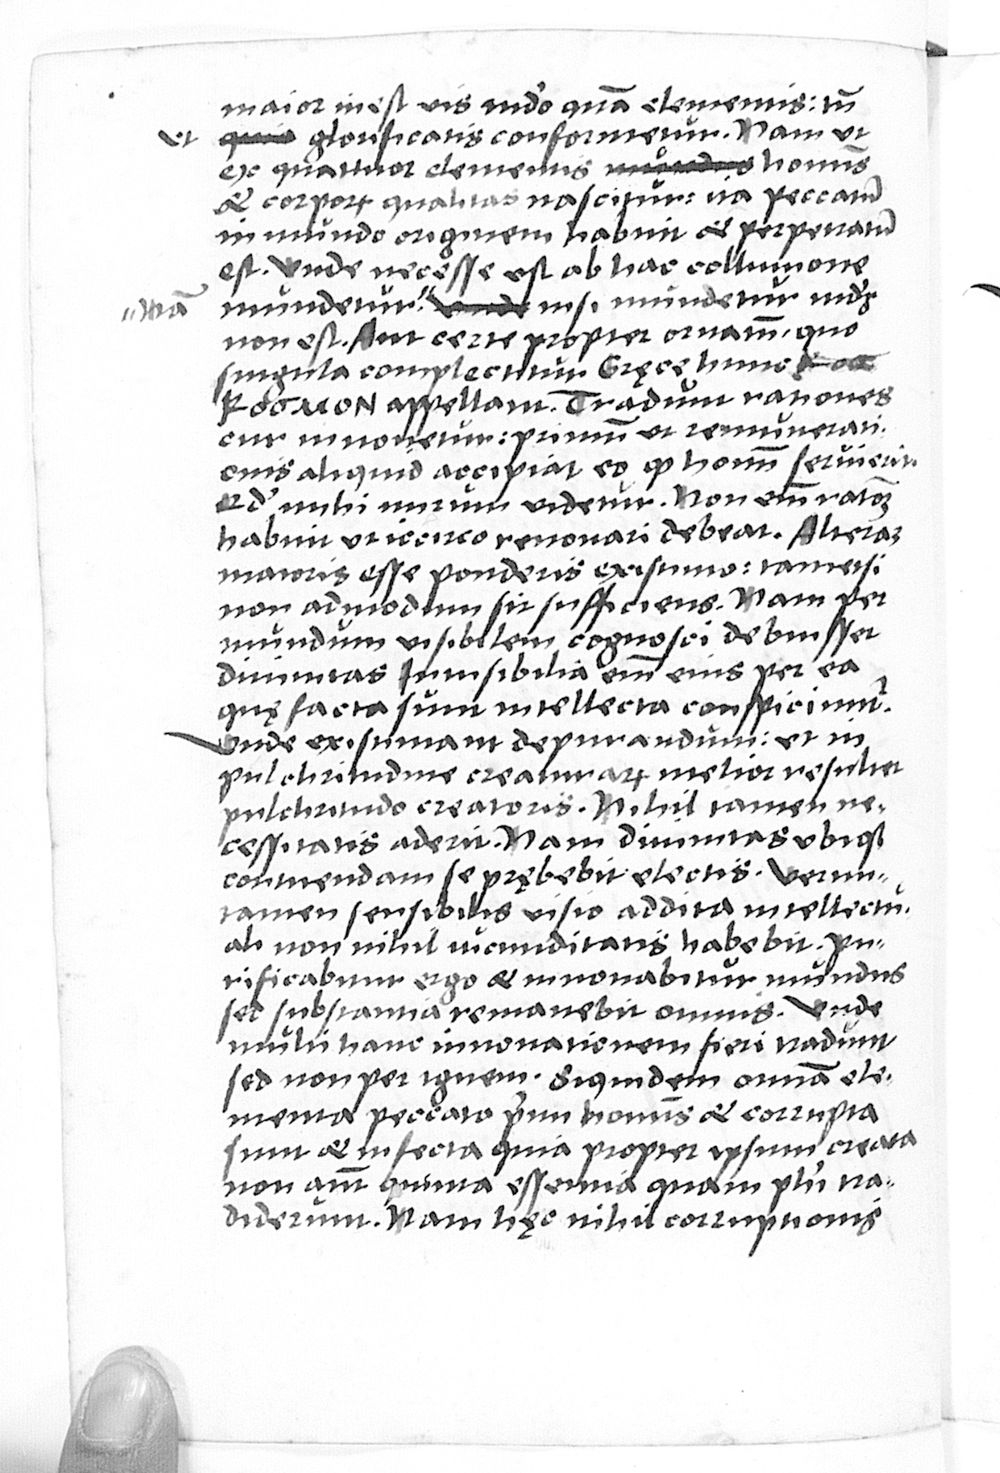 maior inest vis mdo quā elementis: tū
ut quia glorificatis conformetur. Nam ut
ex quattuor elementis mundus homīs
& corporꝝ qualitas nascitur: ita peccatū
in mundo originem habuit & perpetratū
est. Vnde necesse est ab hac colluuione
mundetur. Vnde nisi mundetur
non est. Aut certe propter ornatum̄, quo
singula complectitur Gręcę hunc kos
KOSMON appellant. Tradunt rationes
cur innouetur: primū ut remunerati-
onis aliquid accipiat eo ꝙ homī seruierit.
mihi mirum videtur. Non em̄
habuit ut iccirco renouari debeat. Alteraꝫ
maioris esse ponderis existimo: tametsi
non admodum sit sufficiens. Nam per
mundum visibilem cognosci debuisset
diuinitas Inuisibilia em̄ eius per ea
quę facta sunt intellecta conspiciunt̄.
Vnde existimant depurandum: et in
pulchritudine creaturarꝝ melior resultet
pulchritudo creatoris. Nihil tamen ne-
cessitatis aderit. Nam diuinitas ubiqꝫ
contuendam se prębebit electis. Verun-
tamen sensibilis visio addita intellectu-
ali non nihil iucunditatis habebit. Pu-
rificabitur ergo & innouabitur mundus
sed substantia remanebit omnis. Vnde
multi hanc innouationem fieri tradunt
sed non per ignem. Siquidem omīa ele-
menta peccato p̄mi homīs & corrupta
sunt & infecta quia propter ipsum creata
non aūt quinta essentia quam plr̄i tra-
diderunt. Nam hęc nihil corruptionis